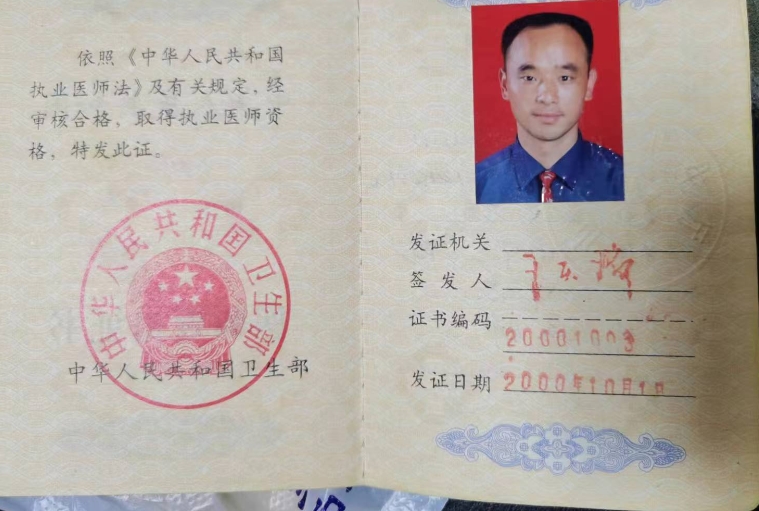 依照《中华人民共和国
执业医师法》及有关规定，经
审核合格，取得执业医师资
格，特发此证。
中华人民共和国卫生部
中华人民共和国卫生部
发证机关
签发人
证书编码
20001003
发证日期 2000年10月10